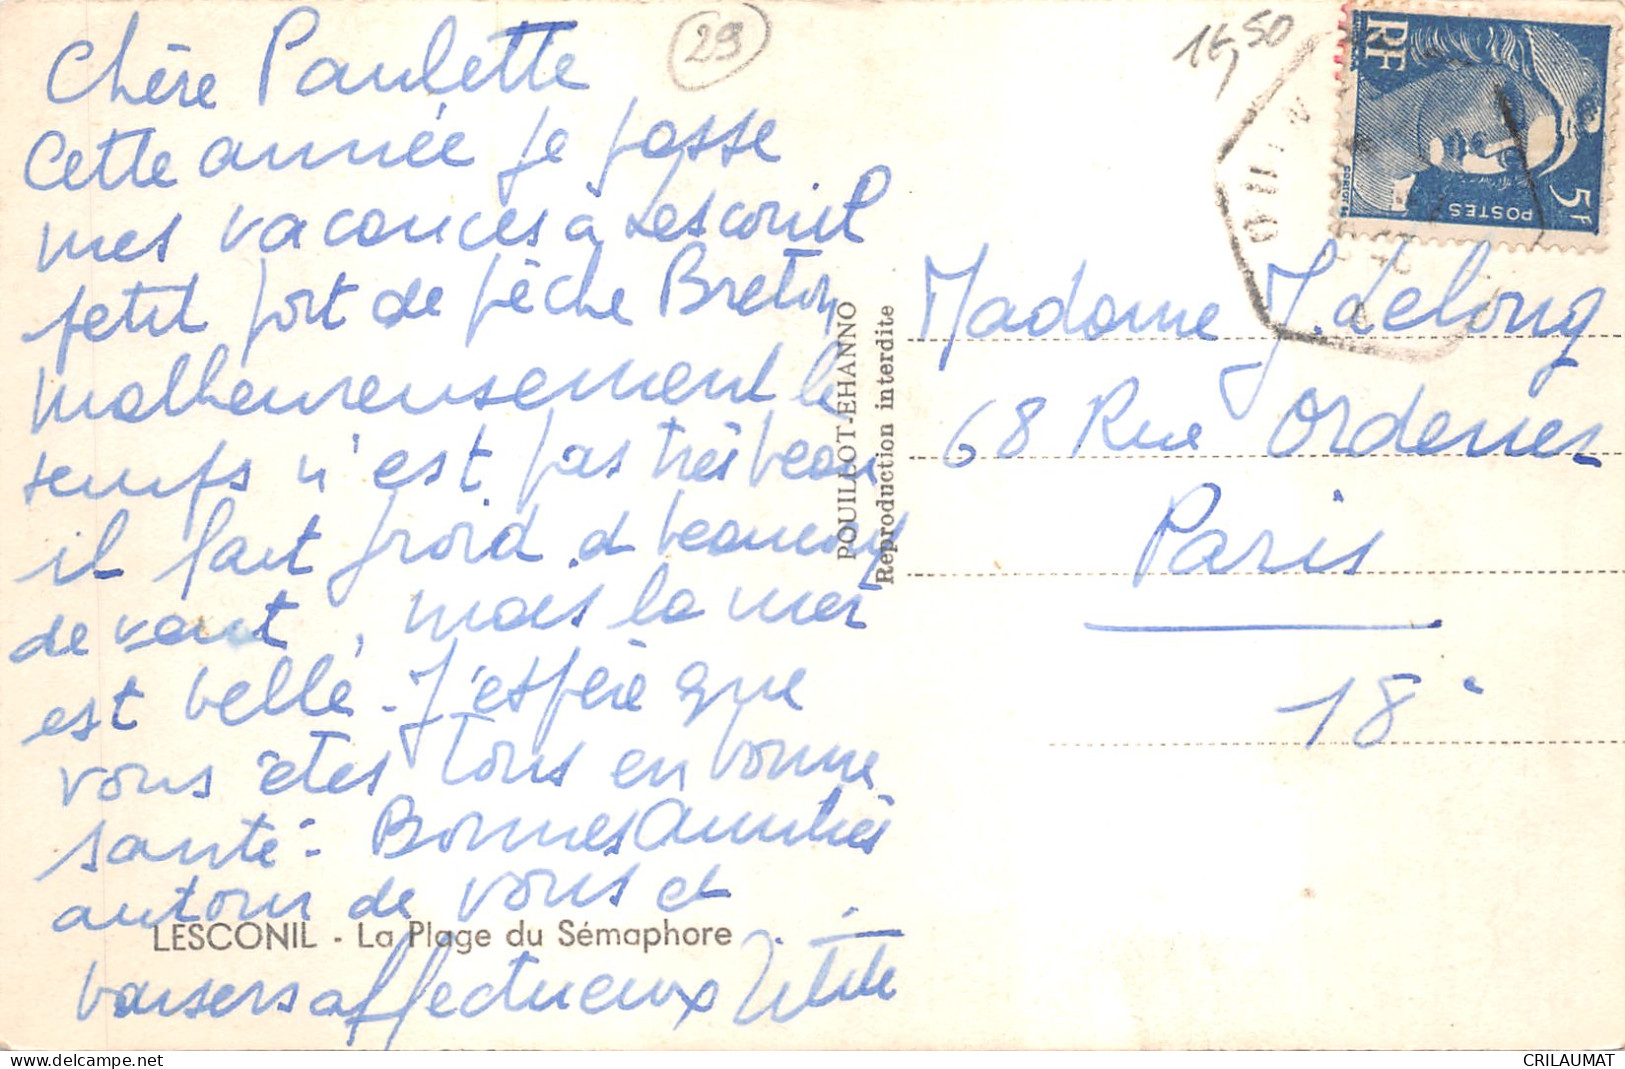 Chère Paulette
Cette année je passe
mes vacances à Lesconil
petit port de pêche Breton
malheureusement le
temps n'est pas très beau
il fait froid et beaucoup
de vent, mais la mer
est belle - J'espère que
vous êtes tous en bonne
santé - Bonnes amitiés
autour de vous et
baisers affectueux
LESCONIL - La Plage du Sémaphore
29
POUILLOT-EHANNO
Reproduction interdite
15,50
RF
POSTES
5F
Madame J. Lelong
68 Rue Ordener
Paris
18e
www.delcampe.net
CRILAUMAT